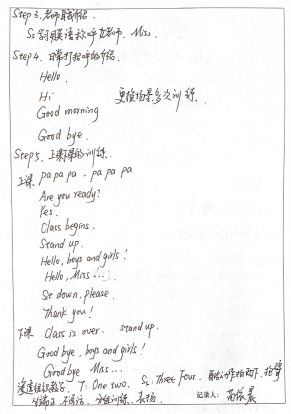 Step 3. 老师自我介绍
Ss: 别用英语称呼女老师. Miss.
Step 4. 日常打招呼的介绍.
Hello.
Hi 更换场景多次训练.
Good morning
Good bye.
Step 5. 上课下课的训练.
上课 pa pa pa . pa pa pa
Are you ready?
Yes.
Class begins.
Stand up.
Hello, boys and girls!
Hello, Miss ....
Sit down, please.
Thank you!
下课 Class is over. stand up.
Good bye, boys and girls!
Good bye Miss....
T: One two. Ss: Three Four.
记录人: